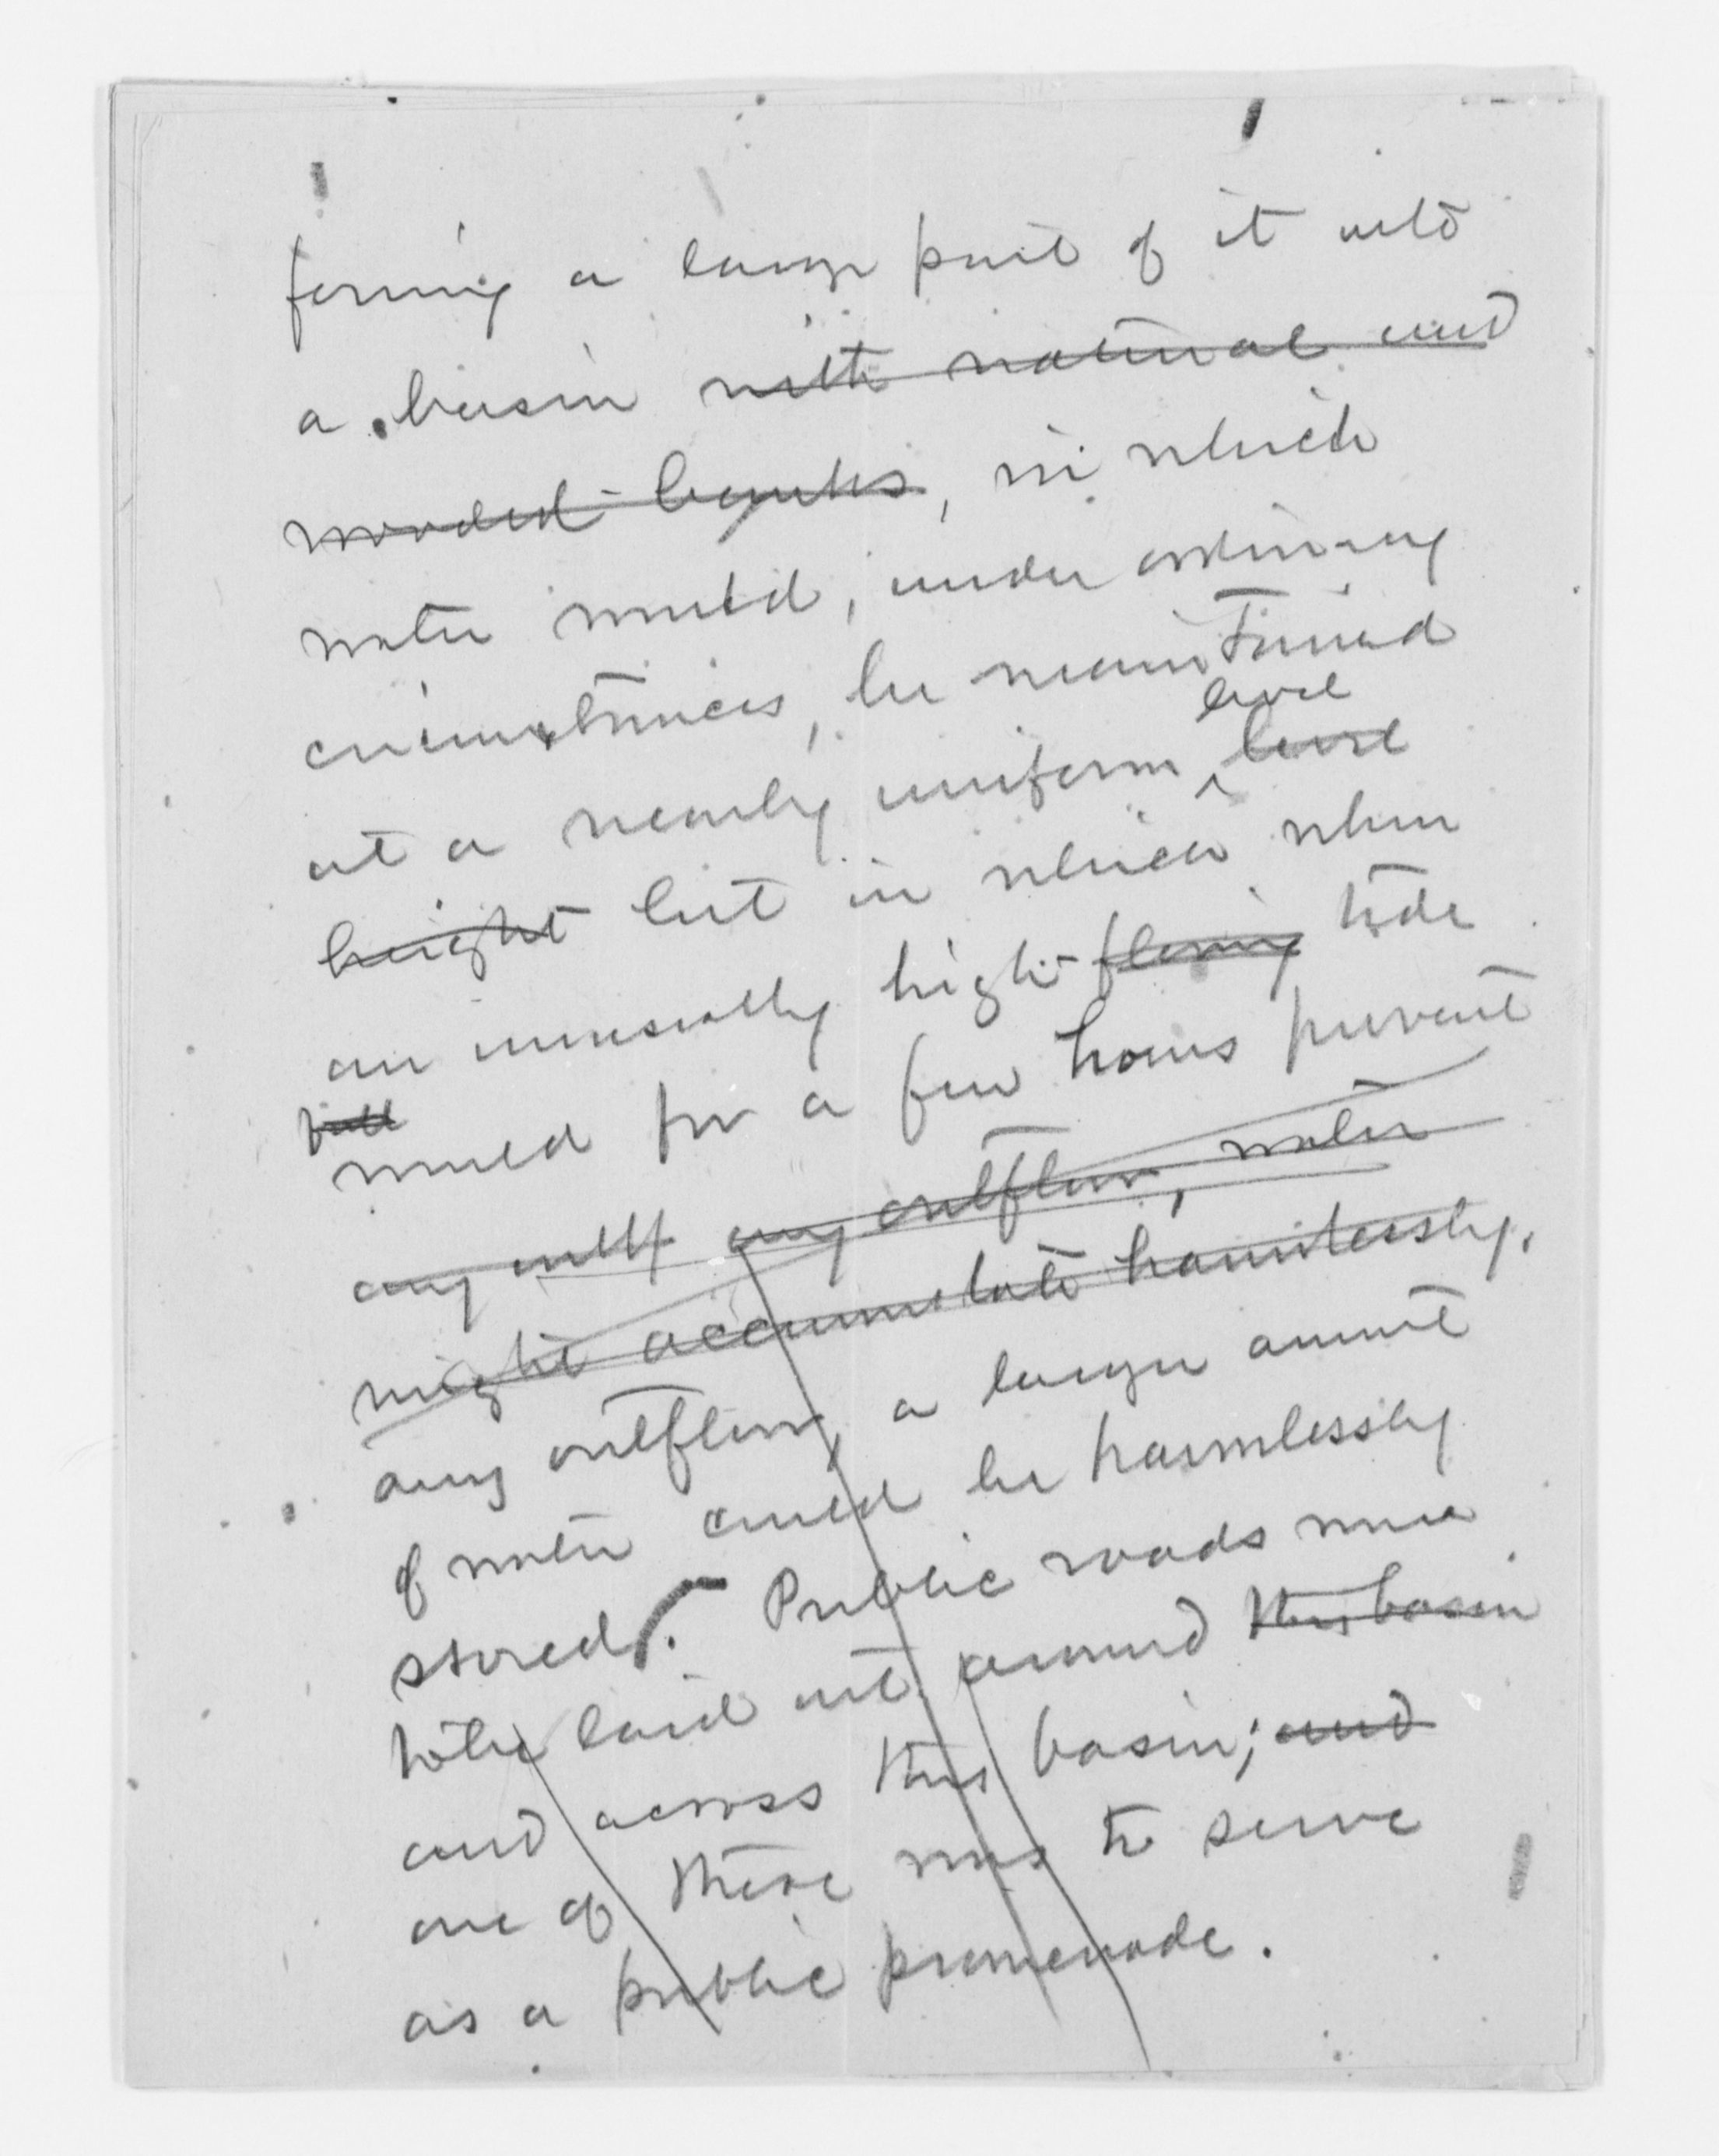 forming a large part of it into
a basin with natural and
wooded banks, in which
water would, under ordinary
circumstances, be maintained
level
at a nearly uniform level
height but in which when
an unusually high flowing tide
would for a few hours prevent
any outf any outflow, water
might accumulate harmlessly.
any outflow, a larger amount
of water could be harmlessly
stored. Public roads were
to be laid out around this basin
and across this basin; and
one of these was to serve
as a public promenade.